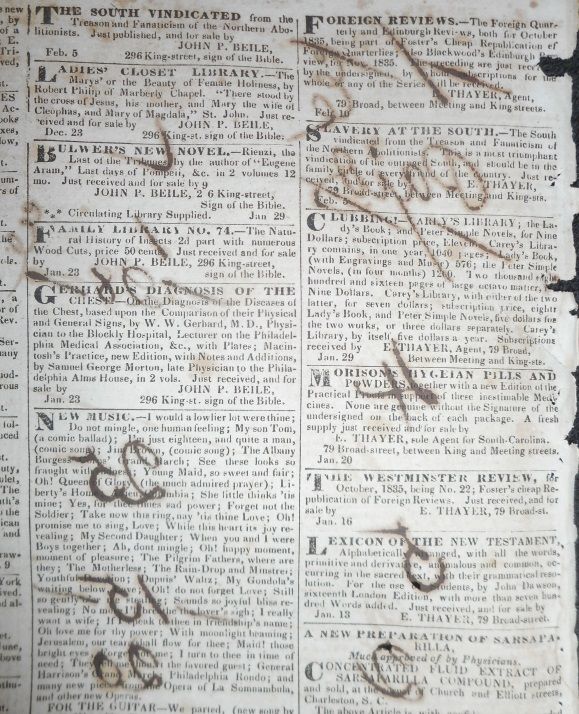 THE SOUTH VINDICATED from the
Treason and Fanaticism of the Northern Abo-
litionists. Just published, and for sale by
JOHN P. BEILE,
Feb. 5 296 King-street, sign of the Bible.
LADIES' CLOSET LIBRARY.—The
Marys' or the Beauty of Female Holiness, by
Robert Philip of Marberly Chapel. "There stood by
the cross of Jesus, his mother, and Mary the wife of
Cleophas, and Mary of Magdala," St. John. Just re-
ceived and for sale by JOHN P. BEILE,
Dec. 23 296 King-st. sign of the Bible.
BULWER'S NEW NOVEL.—Rienzi, the
Last of the Tribunes, by the author of "Eugene
Aram," Last days of Pompeii, &c. in 2 volumes 12
mo. Just received and for sale by 9
JOHN P. BEILE, 2 6 King-street,
Sign of the Bible.
*** Circulating Library Supplied. Jan 29
FAMILY LIBRARY NO. 74.—The Natu-
ral History of Insects 2d part with numerous
Wood Cuts, price 50 cents. Just received and for sale
by JOHN P. BEILE, 296 King-street,
Jan. 23 sign of the Bible.
GERHARD'S DIAGNOSIS OF THE
CHEST.—On the Diagnosis of the Diseases of
the Chest, based upon the Comparison of their Physical
and General Signs, by W. W. Gerhard, M. D., Physi-
cian to the Blokly Hospital, Lecturer on the Philadel-
phia Medical Association, &c., with Plates; Macin-
tosh's Practice, new Edition, with Notes and Additions,
by Samuel George Morton, late Physician to the Phila-
delphia Alms House, in 2 vols. Just received, and for
sale by JOHN P. BEILE,
Jan. 23 296 King-st. sign of the Bible.
NEW MUSIC.—I would a lowlier lot were thine;
Do not mingle, one human feeling; My son Tom,
(a comic ballad); I'm just fifteen, and quite a man,
(comic song); Jim (comic song); The Albany
Burgess Grand March; See these looks so
fraught with Young Maid, so sweet and fair;
Oh! Queen of Glory (the much admired prayer); Li-
berty's Home Columbia; She little thinks 'tis
mine; Yes, for thine eyes and power; Forget not the
Soldier; Take now this ring, my 'tis thine Love; Oh!
promise me to sing, Love; While this heart its joy re-
vealing; My Second Daughter; When you and I were
Boys together; Ah, dont mingle; Oh! happy moment,
moment of pleasure; The Pilgrim Fathers, where are
they; The Motherless; The Rain-Drop and Minstre;
Youthful Dupuis' Waltz; My Gondola's
waiting love; Oh! do not forget Love; Still
so gently stealing; Sounds so joyful bliss re-
vealing; No more breathe a lover's sigh; I really
want a wife; If I speak to thee in friendship's name;
Oh love me for thy power; With moonlight beaming;
Jerusalem, my tears shall flow for thee; Maid! those
bright eyes my heart impress; I turn to thee in time of
need; the favored guest; General
Harrison's Philadelphia Rondo; and
many new pieces from the Opera of La Somnambula,
and other new Operas.
FOR THE GUITAR—We parted, (new song by
FOREIGN REVIEWS.—The Foreign Quar-
terly and Edinburgh Reviews, both for October
1835, being part of Foster's Cheap Republication of
Foreign Quarterlies; also Blackwood's Edinburgh Re-
view, for Nov. 1835. The preceding are just received
by the undersigned, by whom subscriptions for the
whole or any of the Series will be received.
E. THAYER, Agent,
79 Broad, between Meeting and King streets.
Feb. 10
SLAVERY AT THE SOUTH.—The South
vindicated from the Treason and Fanaticism of
the Northern Abolitionists, is a most triumphant
vindication of the outraged South, and should be in the
family circle of every friend of his country. Just re-
ceived, and for sale by E. THAYER,
79 Broad-street, between Meeting and King-sts.
Feb. 5
CLUBBING!—CAREY'S LIBRARY; the La-
dy's Book; and Peter Simple Novels, for Nine
Dollars; subscription price, Eleven. Carey's Libra-
ry contains, in one year, 1040 pages; Lady's Book,
(with Engravings and Music) 576; the Peter Simple
Novels, (in four months) 1200. Two thousand eight
hundred and sixteen pages of large octavo matter, for
Nine Dollars. Carey's Library, with either of the two
latter, for seven dollars; subscription price, eight
Lady's Book, and Peter Simple Novels, five dollars for
the two works, or three dollars separately. Carey's
Library, by itself, five dollars a year. Subscriptions
received by E. THAYER, Agent, 79 Broad,
Jan. 29 Between Meeting and King-sts.
MORISON'S HYGEIAN PILLS AND
POWDERS, together with a new Edition of the
Practical Proofs in support of these inestimable Medi-
cines. None are genuine without the Signature of the
undersigned on the back of each package. A fresh
supply just received and for sale by
E. THAYER, sole Agent for South-Carolina.
79 Broad-street, between King and Meeting streets.
Jan. 20
THE WESTMINSTER REVIEW, for
October, 1835, being No. 22; Foster's cheap Re-
publication of Foreign Reviews. Just received, and for
sale by E. THAYER, 79 Broad-st.
Jan. 16
LEXICON OF THE NEW TESTAMENT,
Alphabetically arranged, with all the words,
primitive and derivative, anomalous and common, oc-
curring in the sacred text, with their grammatical reso-
lution. For the use of students, by John Dawson
sixteenth London Edition, with more than seven hun-
dred Words added. Just received, and for sale by
Jan. 13 E. THAYER, 79 Broad-street.
A NEW PREPARATION OF SARSAPA-
RILLA,
Much approved of by Physicians.
CONCENTRATED FLUID EXTRACT OF
SARSAPARILLA COMPOUND, prepared
and sold, at the Church and Elliott streets,
Charleston, S. C.